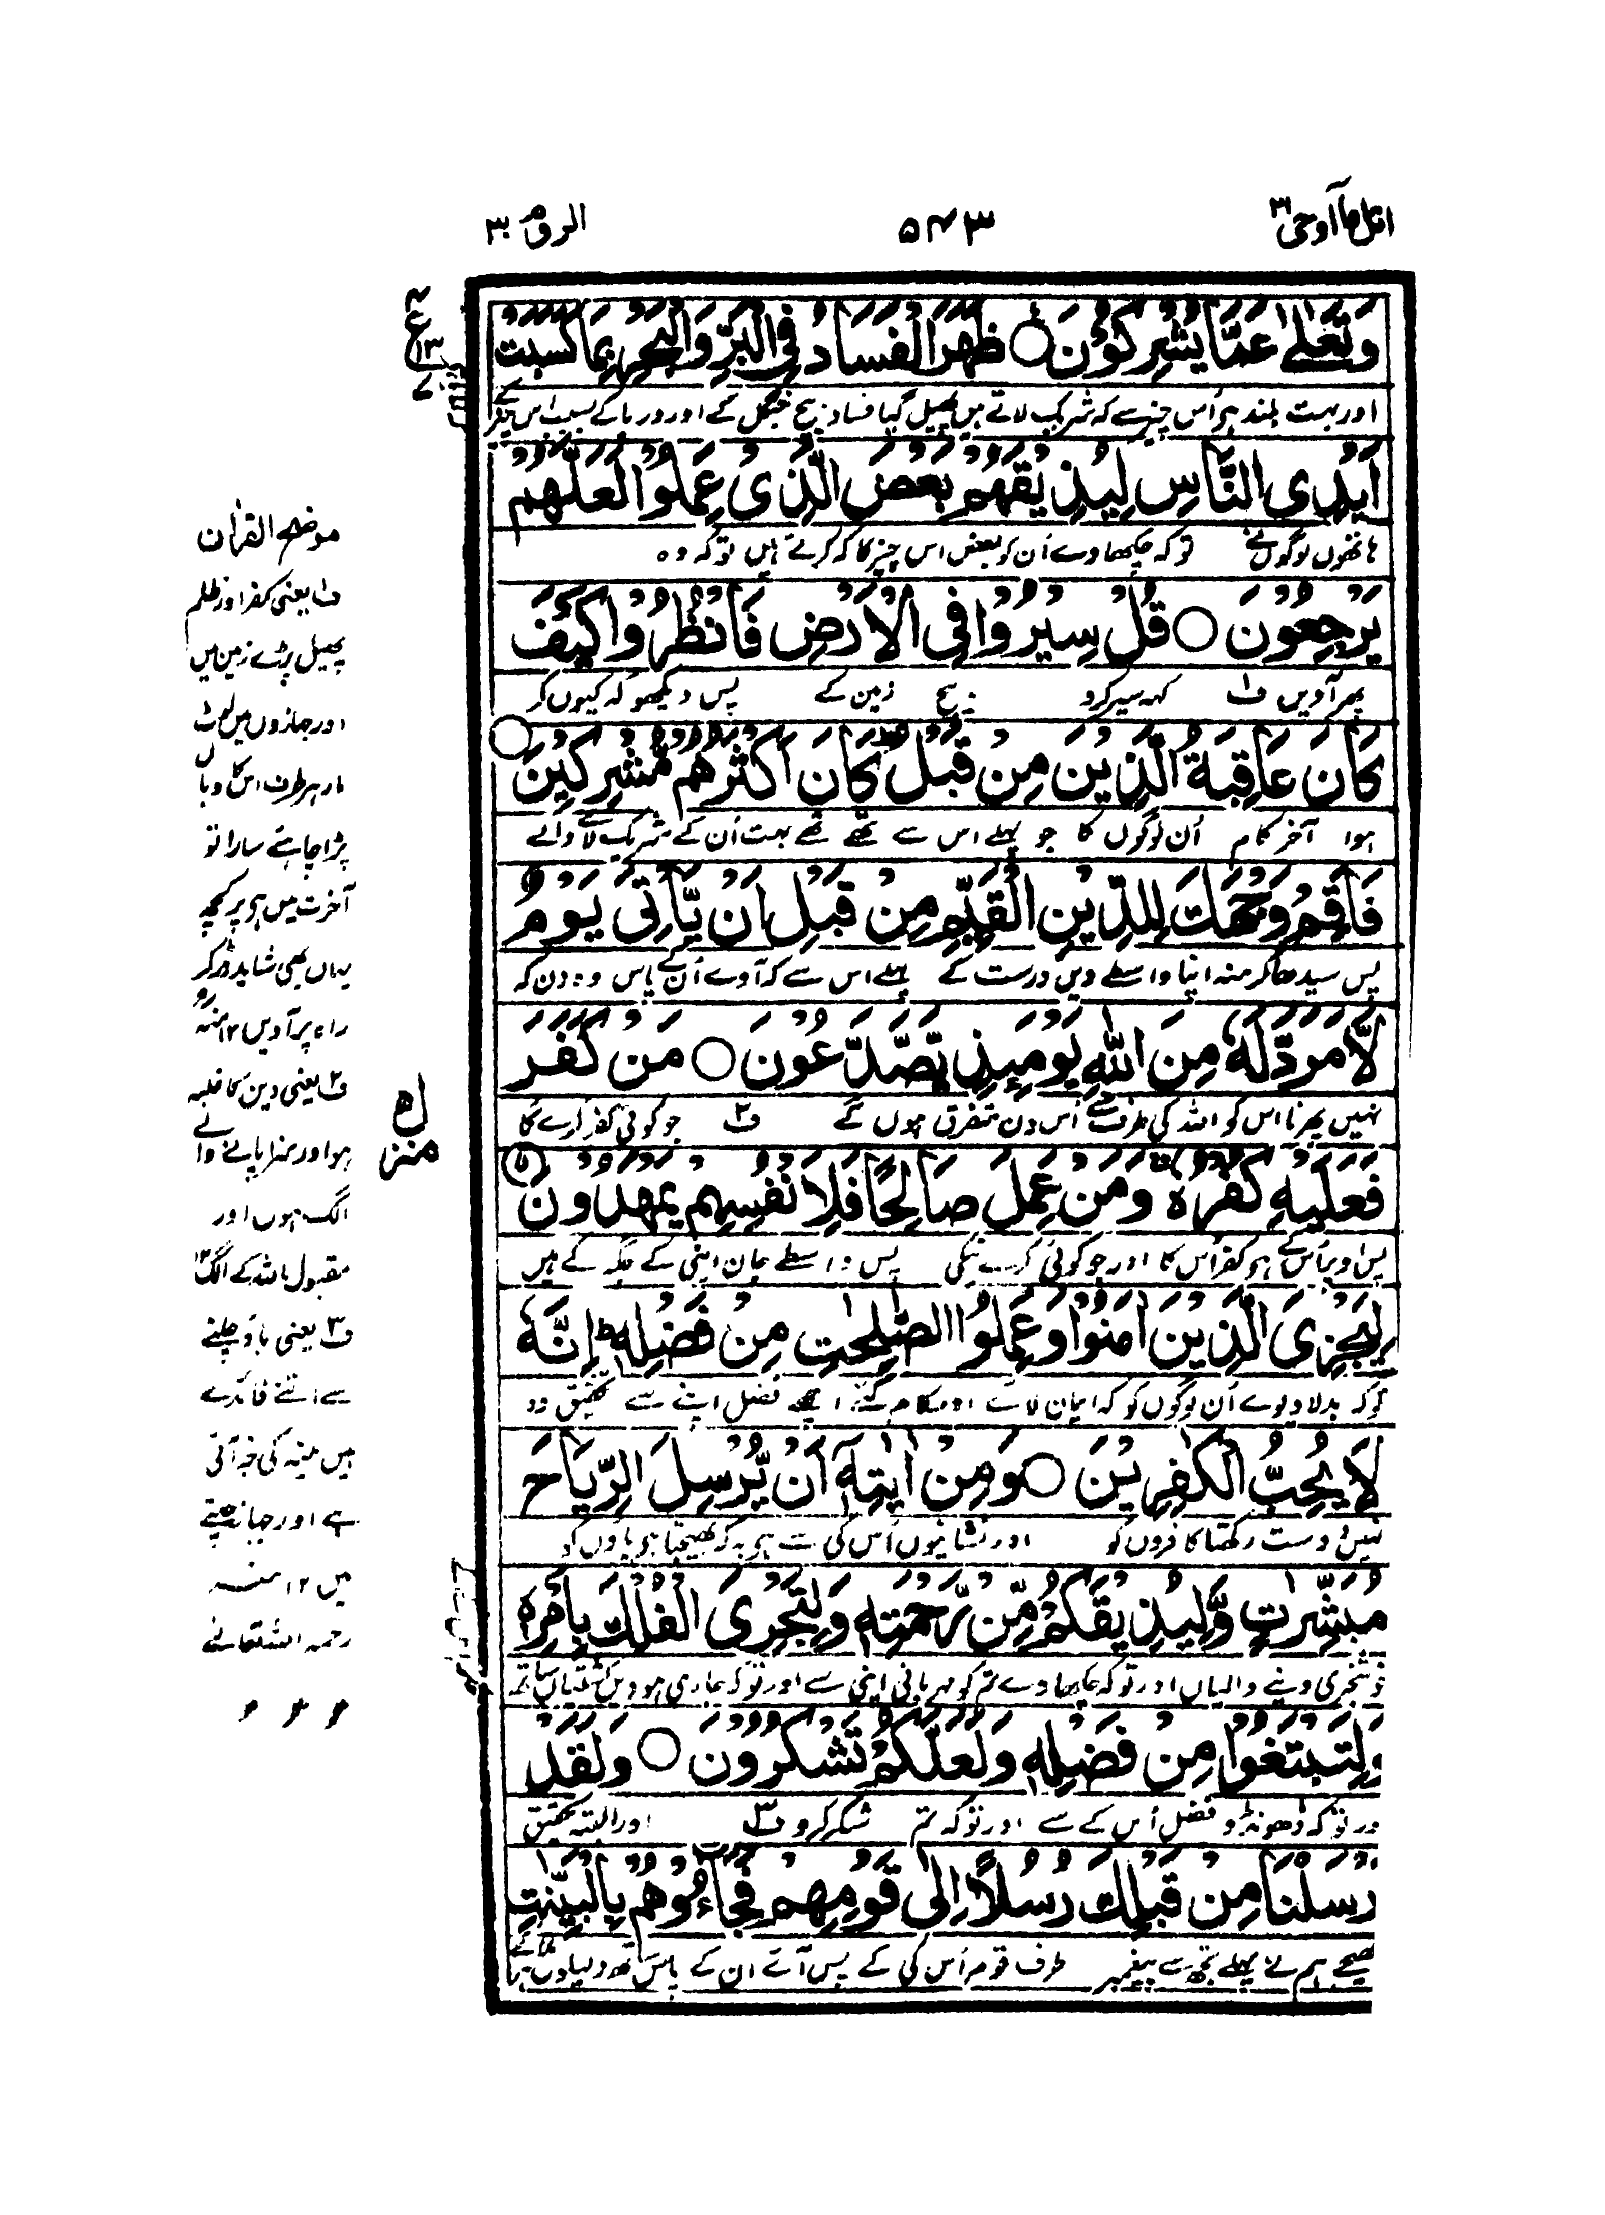 اتل ما اوحی ۲۱
۵۴۳
الروم ۳۰
وَتَعٰلٰى عَمَّا يُشْرِكُوْنَ ○ ظَهَرَ الْفَسَادُ فِى الْبَرِّ وَالْبَحْرِ بِمَا كَسَبَتْ
اور بہت بلند ہے اُس چیز سے کہ شریک لاتے ہیں پھیل گیا فساد بیچ جنگل کے اور دریا کے بسبب اس چیز کے
اَيْدِى النَّاسِ لِيُذِيْقَهُمْ بَعْضَ الَّذِىْ عَمِلُوْا لَعَلَّهُمْ
ہاتھوں لوگوں نے تو کہ چکھاوے اُن کو بعض اس چیز کا کہ کرتے ہیں تو کہ وہ
يَرْجِعُوْنَ ○ قُلْ سِيْرُوْا فِى الْاَرْضِ فَانْظُرُوْا كَيْفَ
پھر آویں ف۱ کہہ سیر کرو بیچ زمین کے پس دیکھو کہ کیوں کر
كَانَ عَاقِبَةُ الَّذِيْنَ مِنْ قَبْلُ كَانَ اَكْثَرُهُمْ مُّشْرِكِيْنَ ○
ہوا آخر کام اُن لوگوں کا جو پہلے اس سے تھے تھے بہت اُن کے شریک لانے والے
فَاَقِمْ وَجْهَكَ لِلدِّيْنِ الْقَيِّمِ مِنْ قَبْلِ اَنْ يَّاْتِىَ يَوْمٌ
پس سیدھا کر منہ اپنا واسطے دین درست کے پہلے اس سے کہ آوے اُن کے پاس وہ دن کہ
لَّا مَرَدَّ لَهٗ مِنَ اللّٰهِ يَوْمَئِذٍ يَّصَّدَّعُوْنَ ○ مَنْ كَفَرَ
نہیں پھرنا اس کو اللہ کی طرف سے اُس دن متفرق ہوں گے ف۲ جو کوئی کفر کرے کا
فَعَلَيْهِ كُفْرُهٗ وَمَنْ عَمِلَ صَالِحًا فَلِاَنْفُسِهِمْ يَمْهَدُوْنَ
پس اوپر اُس کے ہے کفر اُس کا اور جو کوئی کرے نیکی پس واسطے جان اپنی کے جگہ کرتے ہیں
لِيَجْزِىَ الَّذِيْنَ اٰمَنُوْا وَعَمِلُوا الصّٰلِحٰتِ مِنْ فَضْلِهٖ ؕ اِنَّهٗ
تو کہ بدلا دیوے اُن لوگوں کو کہ ایمان لائے اور کام کئے اچھے فضل اپنے سے تحقیق وہ
لَا يُحِبُّ الْكٰفِرِيْنَ ○ وَمِنْ اٰيٰتِهٖۤ اَنْ يُّرْسِلَ الرِّيَاحَ
نہیں دوست رکھتا کافروں کو اور نشانیوں اُس کی سے ہے یہ کہ بھیجتا ہے باؤوں کو
مُبَشِّرٰتٍ وَّلِيُذِيْقَكُمْ مِّنْ رَّحْمَتِهٖ وَلِتَجْرِىَ الْفُلْكُ بِاَمْرِهٖ
خوشخبری دینے والیاں اور تو کہ چکھاوے تم کو مہربانی اپنی سے اور تو کہ جاری ہوویں کشتیاں ساتھ
وَلِتَبْتَغُوْا مِنْ فَضْلِهٖ وَلَعَلَّكُمْ تَشْكُرُوْنَ ○ وَلَقَدْ
ور تو کہ ڈھونڈو فضل اُس کے سے اور تو کہ تم شکر کرو ف۳ اور البتہ تحقیق
رْسَلْنَا مِنْ قَبْلِكَ رُسُلًا اِلٰى قَوْمِهِمْ فَجَآءُوْهُمْ بِالْبَيِّنٰتِ
بھیجے ہم نے پہلے تجھ سے پیغمبر طرف قوم اُس کی کے پس آئے ان کے پاس
موضح القرآن
ف۱ یعنی کفر اور ظلم
پھیل پڑے زمین میں
اور جہازوں میں لوٹ
مار ہر طرف اس کا وبال
پڑا چاہئے سارا تو
آخرت میں ہے پر کچھ
یہاں بھی شاید ڈر کر
راہ پر آویں ۱۲ منہ رہ
ف۲ یعنی دین کا غلبہ
ہو اور سزا پانے والے
الگ ہوں اور
مقبول اللہ کے الگ ۱۲
ف۳ یعنی باؤ چلنے
سے اتنے فائدے
ہیں مینہ کی خبر آتی
ہے اور جہاز چلتے
میں ۱۲ منہ
رحمہ اللہ تعالٰی
ع ۱۳ ۷
منزل ۵